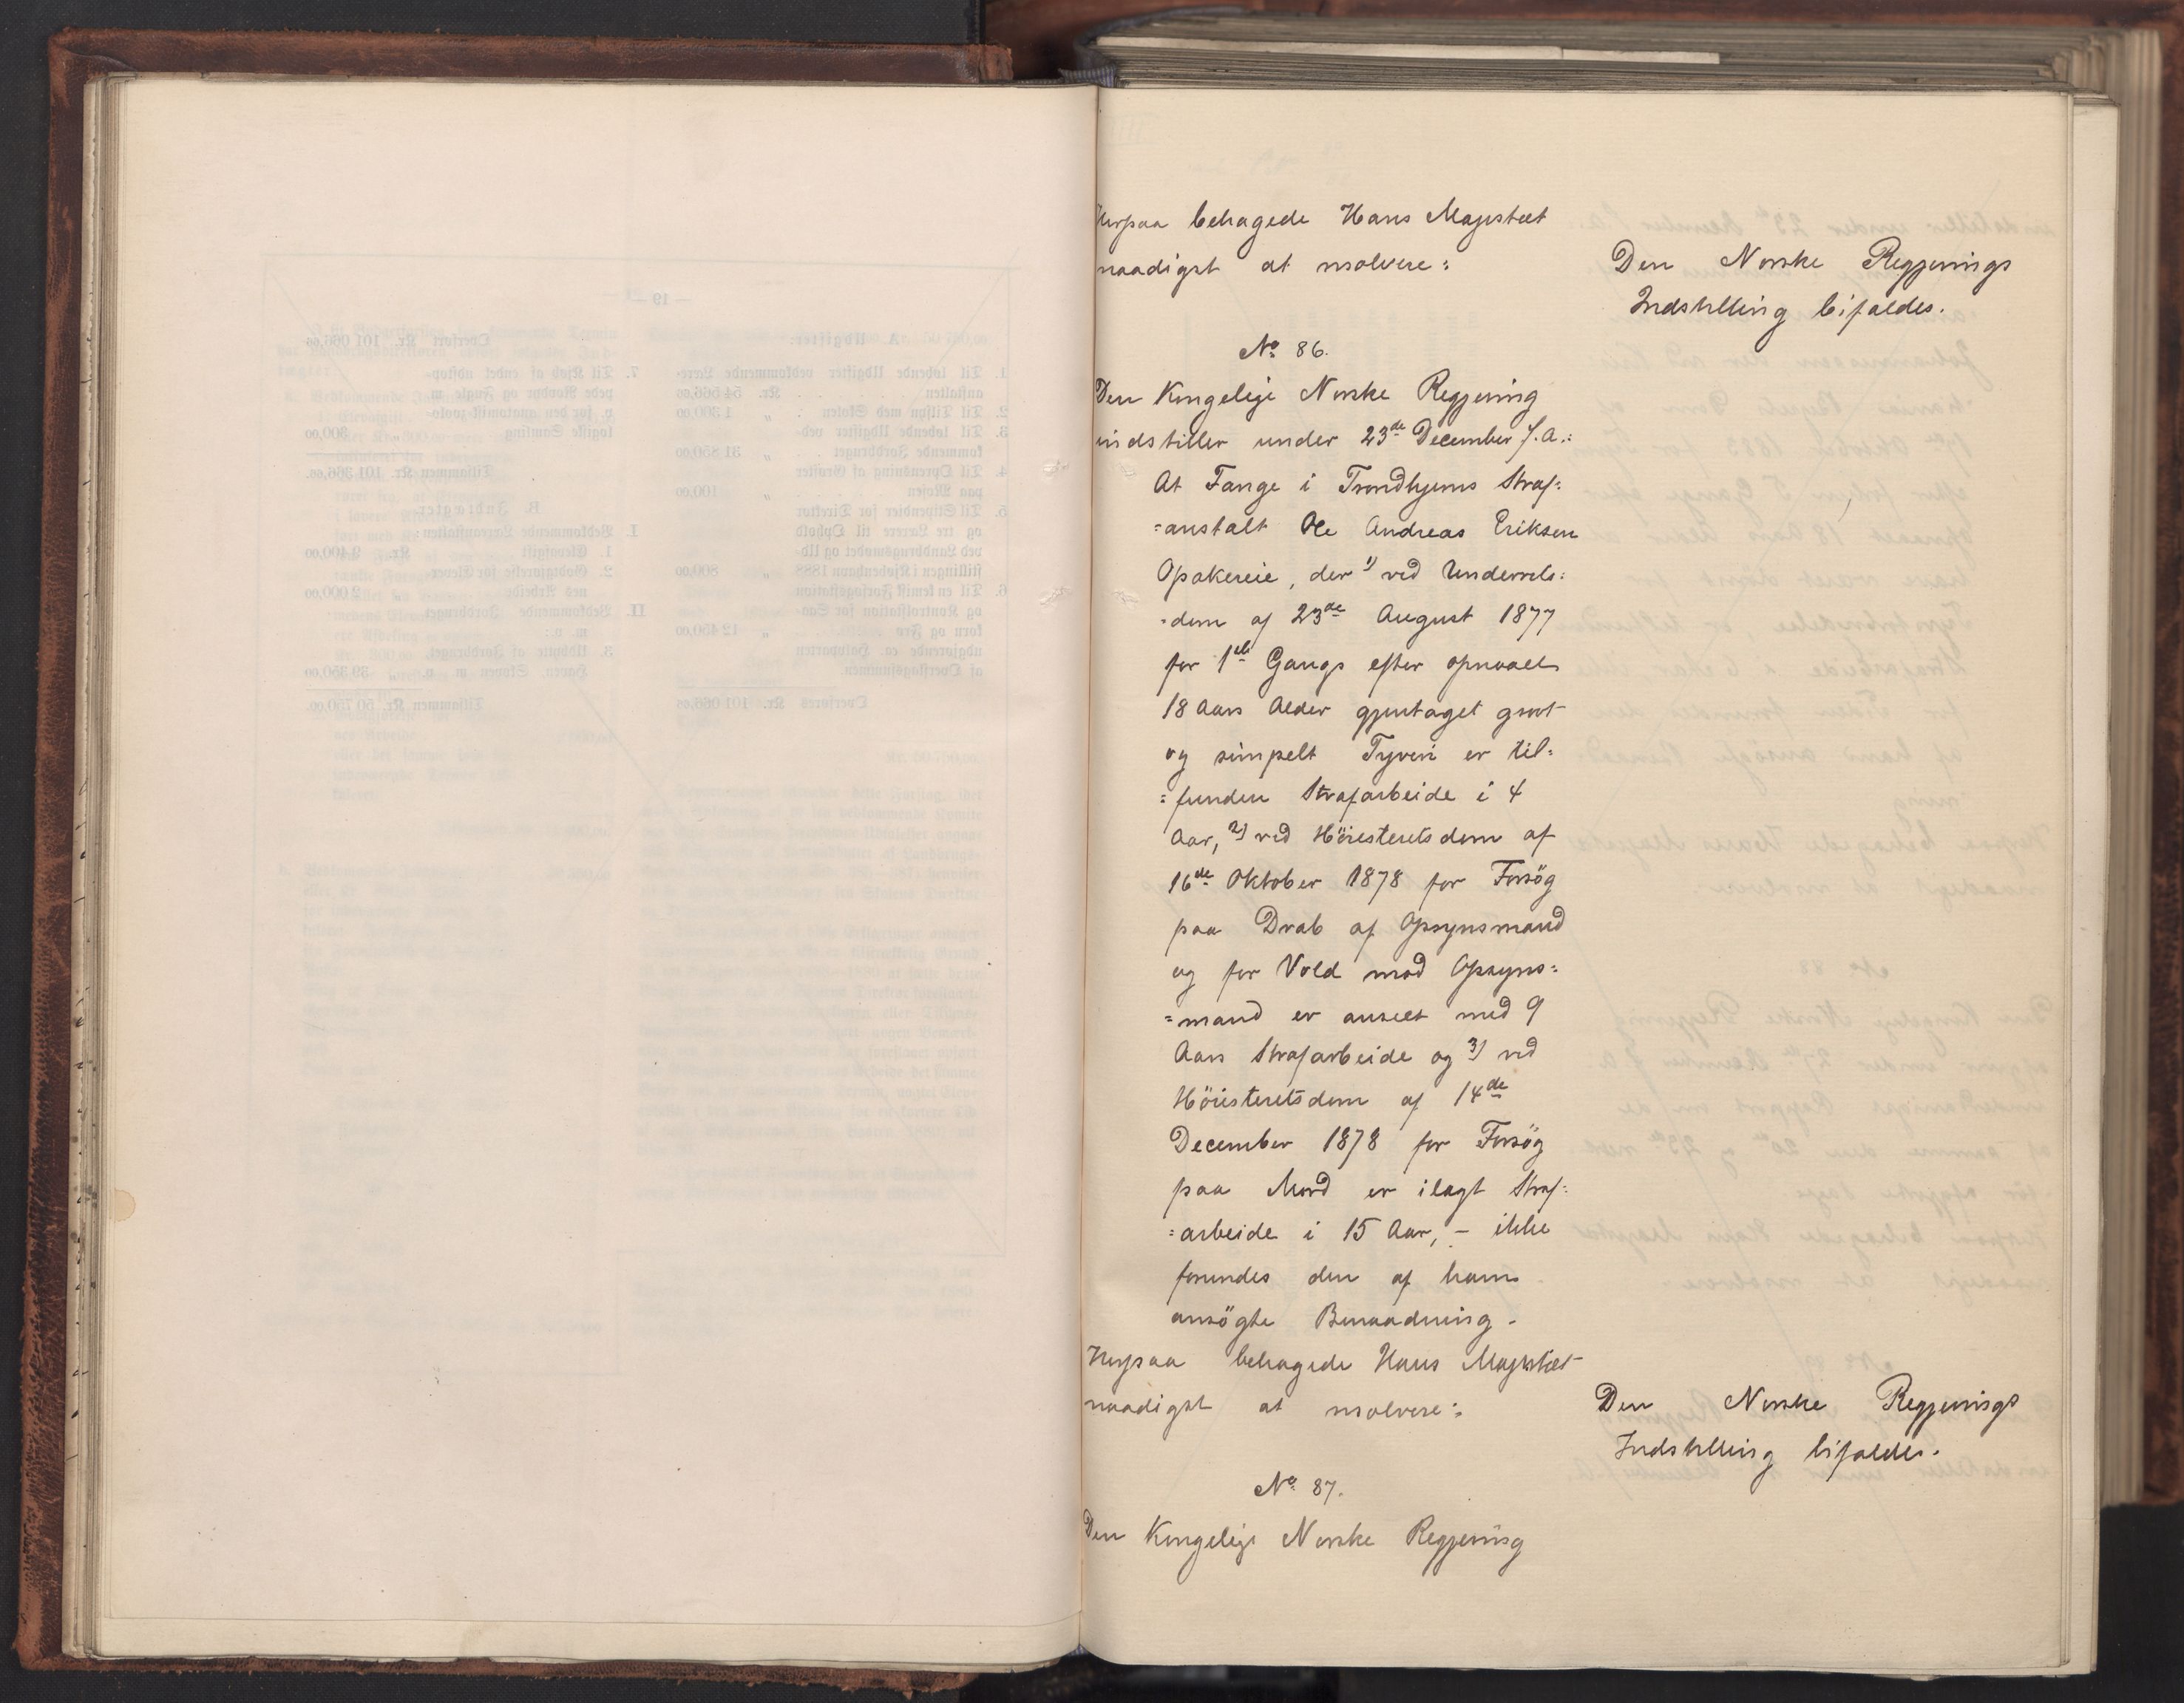 Herpaa behagede Hans Majestæt
naadigst at resolvere:
Den Norske Regjerings
Indstilling bifaldes.
No 86.
Den Kongelige Norske Regjering
indstiller under 23de December f. a.:
At Fange i Trondhjems Straf=
=anstalt Ole Andreas Eriksen
Opakereie, der 1) ved Underrets=
=dom af 23de August 1877
for 1ste Gangs efter opnaaet
18 Aars Alder gjentaget grovt
og simpelt Tyveri er til=
=funden Strafarbeide i 4
Aar, 2) ved Höiesteretsdom af
16de Oktober 1878 for Forsög
paa Drab af Opsynsmand
og for Vold mod Opsyns=
=mand er anseet med 9
Aars Strafarbeide og 3) ved
Höiesteretsdom af 14de
December 1878 for Forsög
paa Mord er ilagt Straf=
=arbeide i 15 Aar, – ikke
forundes den af ham
ansögte Benaadning.
Herpaa behagede Hans Majestæt
naadigst at resolvere:
Den Norske Regjerings
Indstilling bifaldes.
No 87.
Den Kongelige Norske Regjering